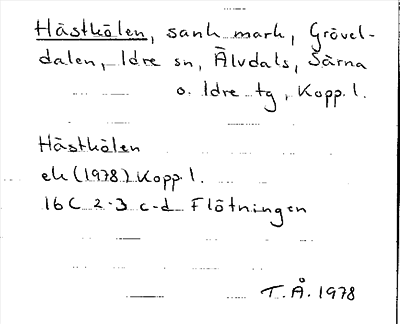 Hästkölen, sank mark, Grövel-
dalen, Idre sn, Älvdals, Särna
o. Idre tg, Kopp. l.
Hästkölen
ek (1978) Kopp. l.
16C 2-3 c-d Flötningen
T. Å. 1978